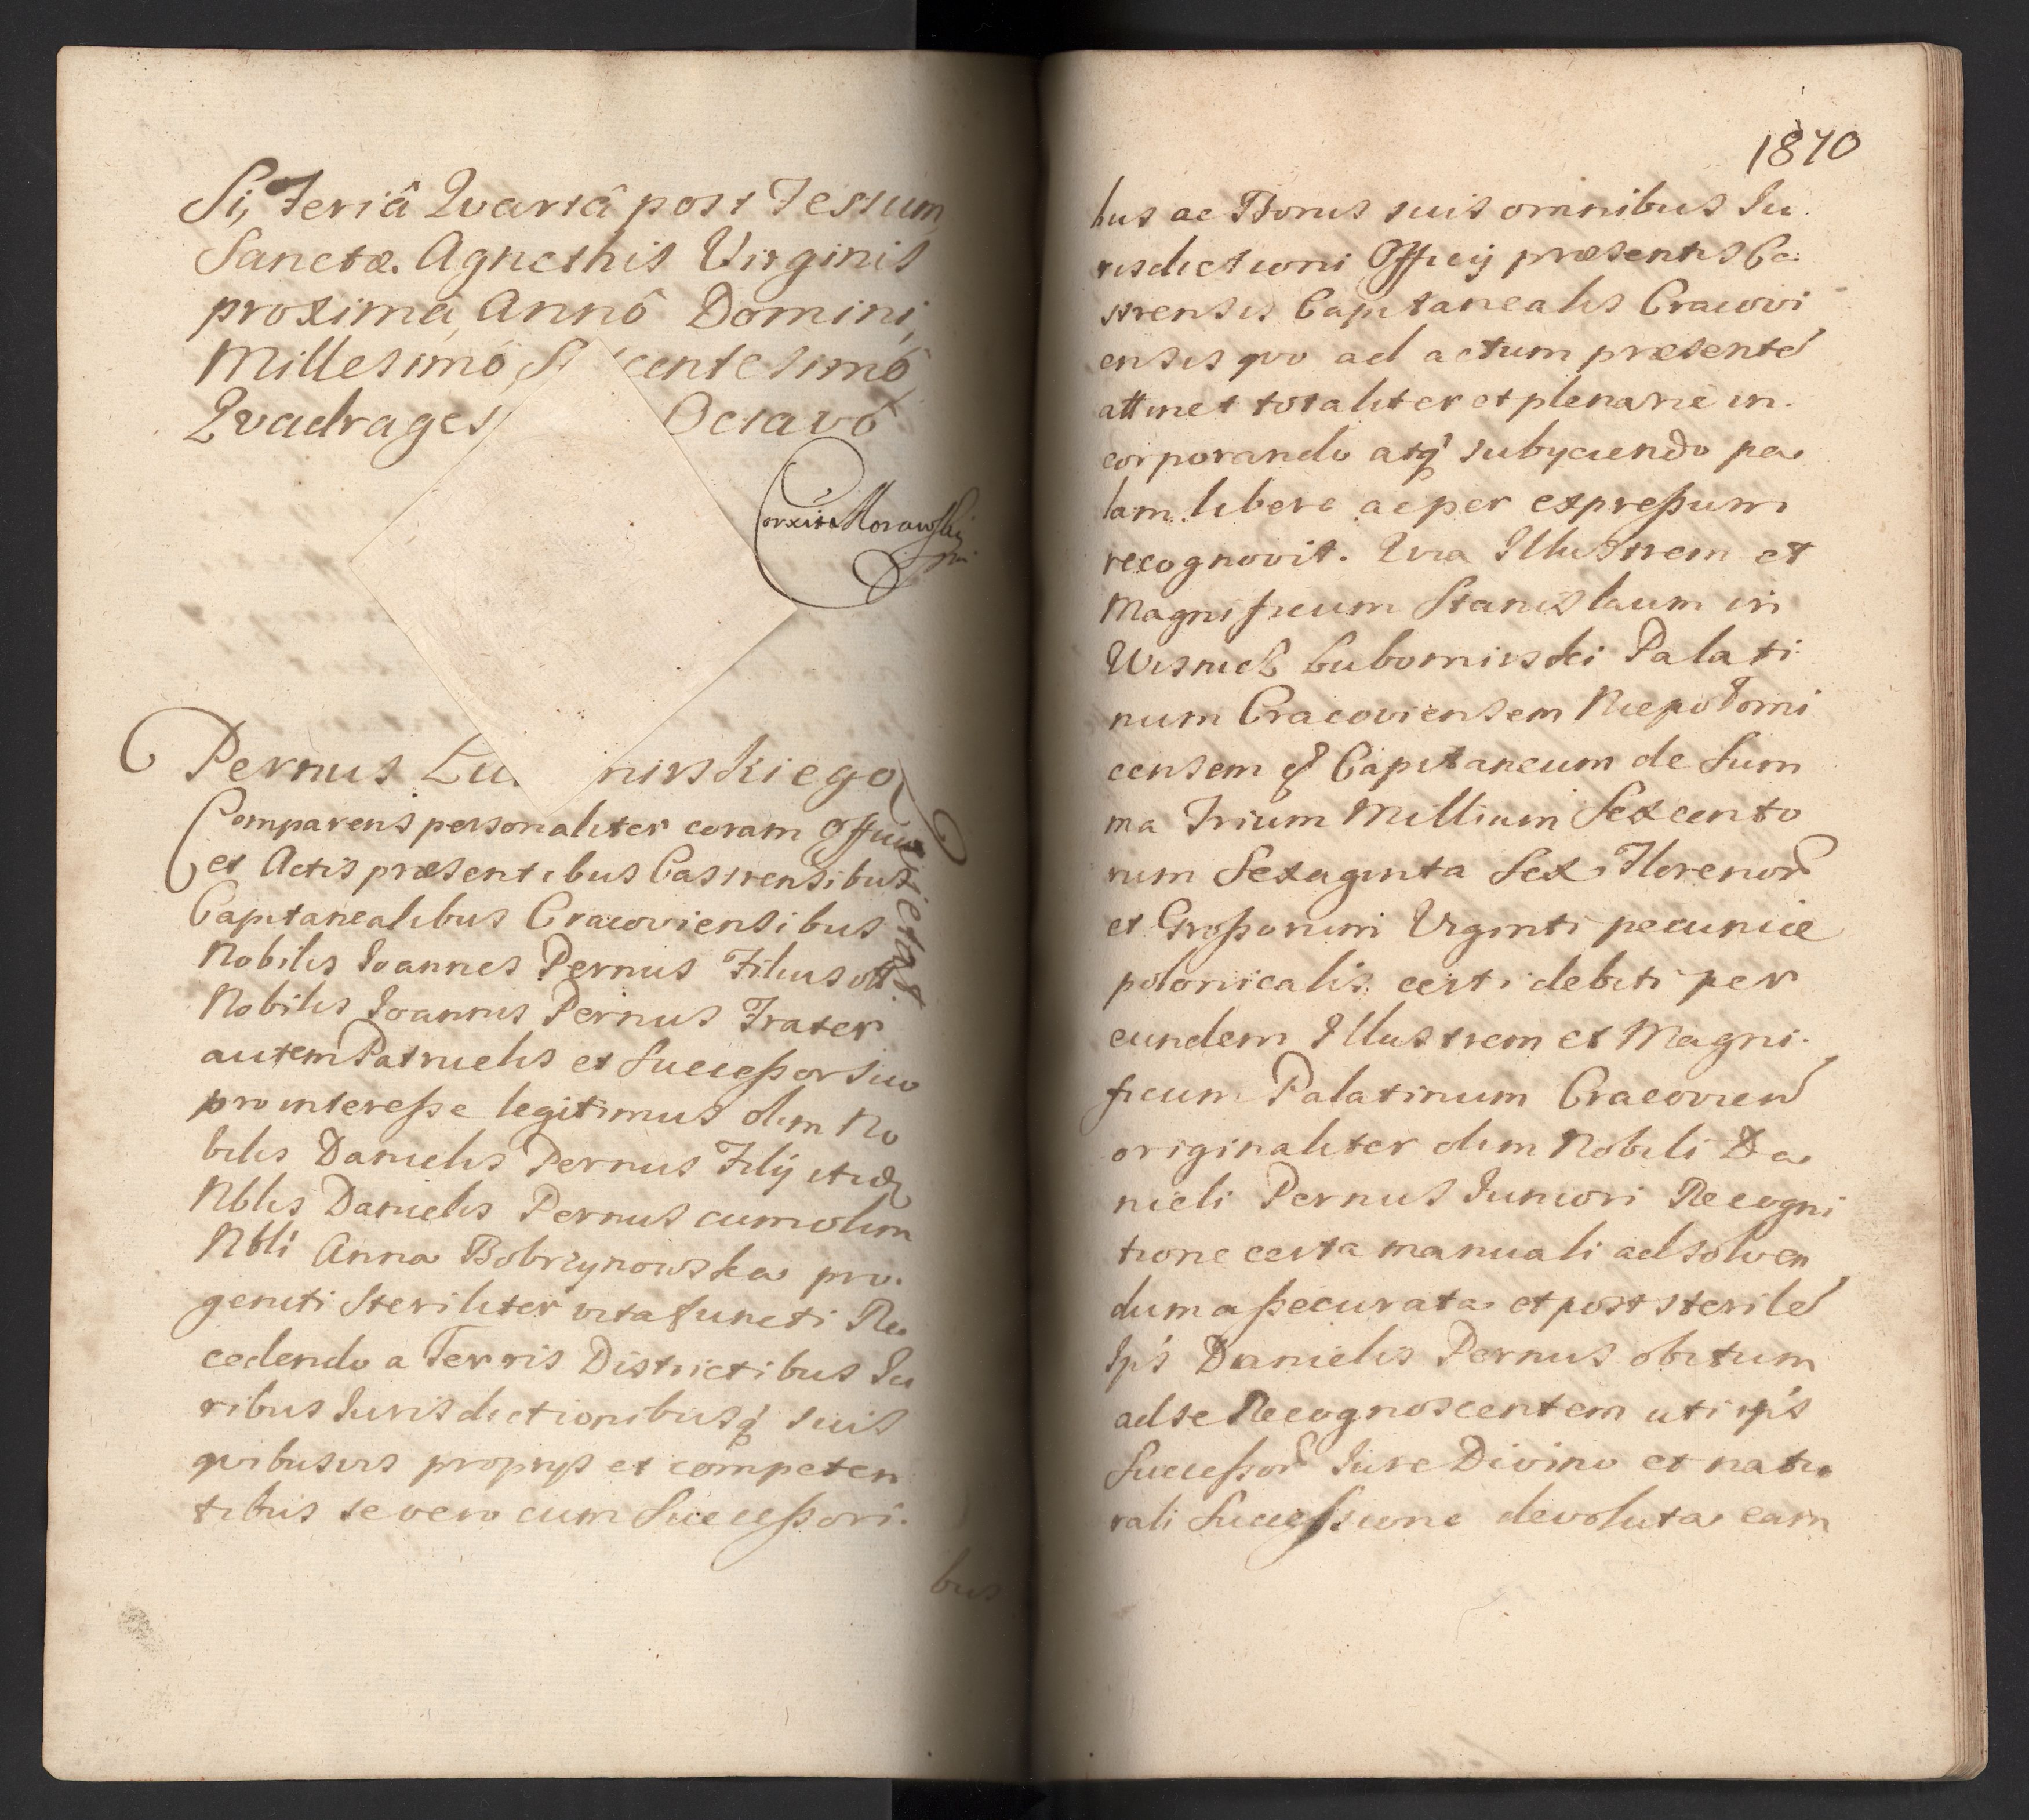 Si, Feriâ Qvartâ post Festum
Sanctæ Agnethis Virginis
proximâ, Annô Domini,
Millesimô centesimô
Qvadrages Octavô
Corxit Morawski
mp
Pernus Lu nirskiego
Comparens personaliter coram Officio
et Actis præsentibus Castrensibus
Capitanealibus Cracoviensibus
Nobilis Joannes Pernus Filius olț
Nobilis Joannis Pernus Frater
autem Patruelis et Succeßor suo
prointereße legitimus olim No
bilis Danielis Pernus Filij itidę
Nblis Danielis Pernus cum olim
Nbli Anna Bobrzynowska pro.
geniti Steriliter vita functi Re
cedendo a Terris Districtibus Ju
ribus Jurisdictionibusq̃ suis
qvibusvis proprys et competen
tibus se vero cum Succeßori.
bus
1870
bus ac Bonis suis omnibus Ju.
risdictioni Officij præsentis Ca.
strensis Capitanealis Cracovi
ensis qvo ad actum præsentē
attinet totaliter et plenarie in.
corporando atq̃ subyciendo pa
lam libere ac per expreßum
recognovit. Qvia Illustrem et
Magnificum Stanislaum in
Wisnicz Lubomirski Palati
num Cracoviensem Niepołomi
censem q̃ Capitaneum de Sum
ma Trium Millium Sexcento
rum Sexaginta Sex Florenorꝭ
et Großorum Viginti pecuniæ
polonicalis certi debiti per
eundem Illustrem et Magni.
ficum Palatinum Cracovien̄
originaliter olim Nobili Da
nieli Pernus Juniori Recogni
tione certa manuali ad solven
dum aßecurata et post sterilē
Ips Danielis Pernus obitum
ad se Recognoscentem uti ips
Succeßorꝭ Jure Divino et natu
rali Succeßione devoluta eam